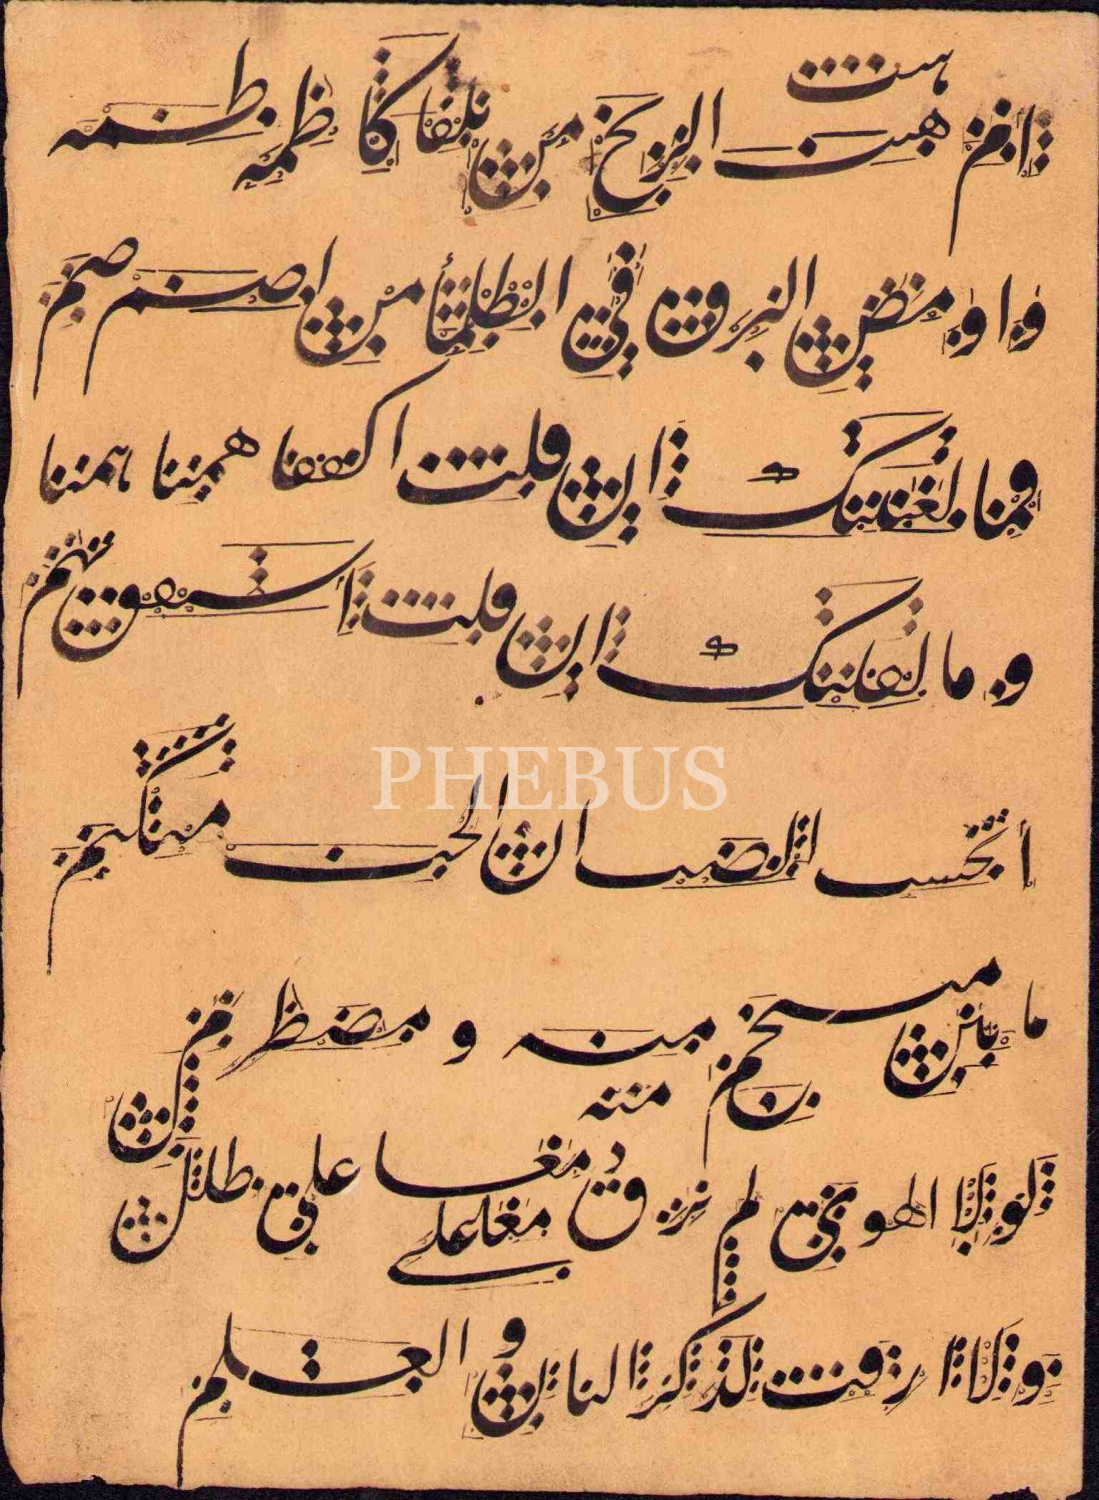 هبت
ام هبت الريح من تلقا كاظمه طمه
و او ومض البرق في الظلما من اضم ضم
فما لعينيك ان قلت اكففا همتا همتا
و ما لقلبك ان قلت استفق يهم
PHEBUS
أيحسب الصب ان الحب منكتم
ما بين منسجم منه و مضطرم
منه
لولا الهوى لم ترق دمعا على طلل
معا على
ولا ارقت لذكر البان و العلم